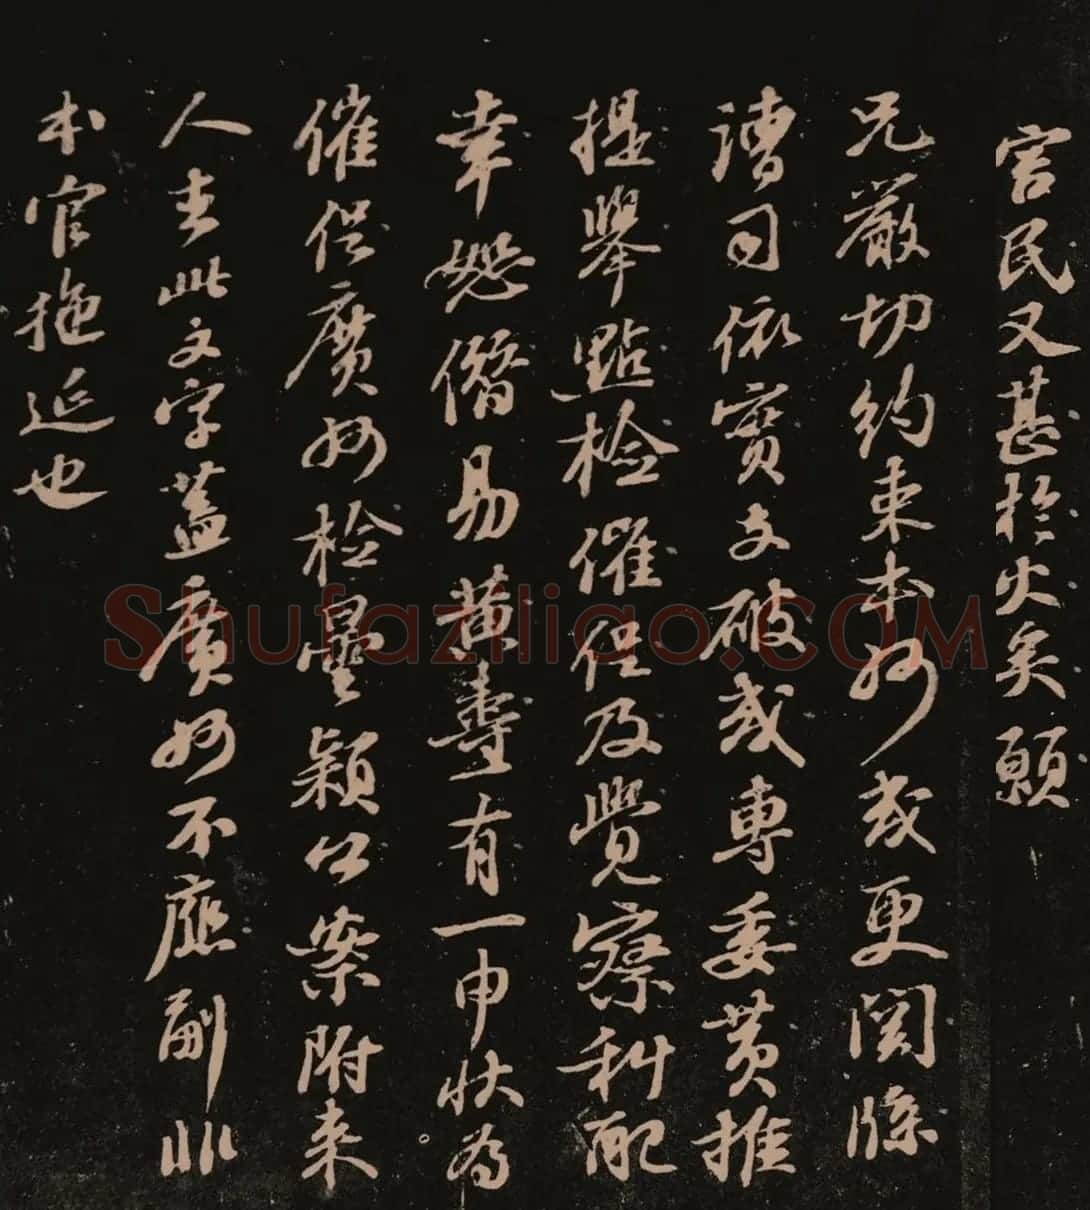 害民又甚於火矣願
兄嚴切約束本州或更関牒
漕司依實支破或專委黄推
提舉點檢催促及覺察科配
幸恕僭易黄燾有一申状為
催促廣州檢曇颖公案附来
人去此文字蓋廣州不應副非
本官拖延也
Shufaziliao.COM